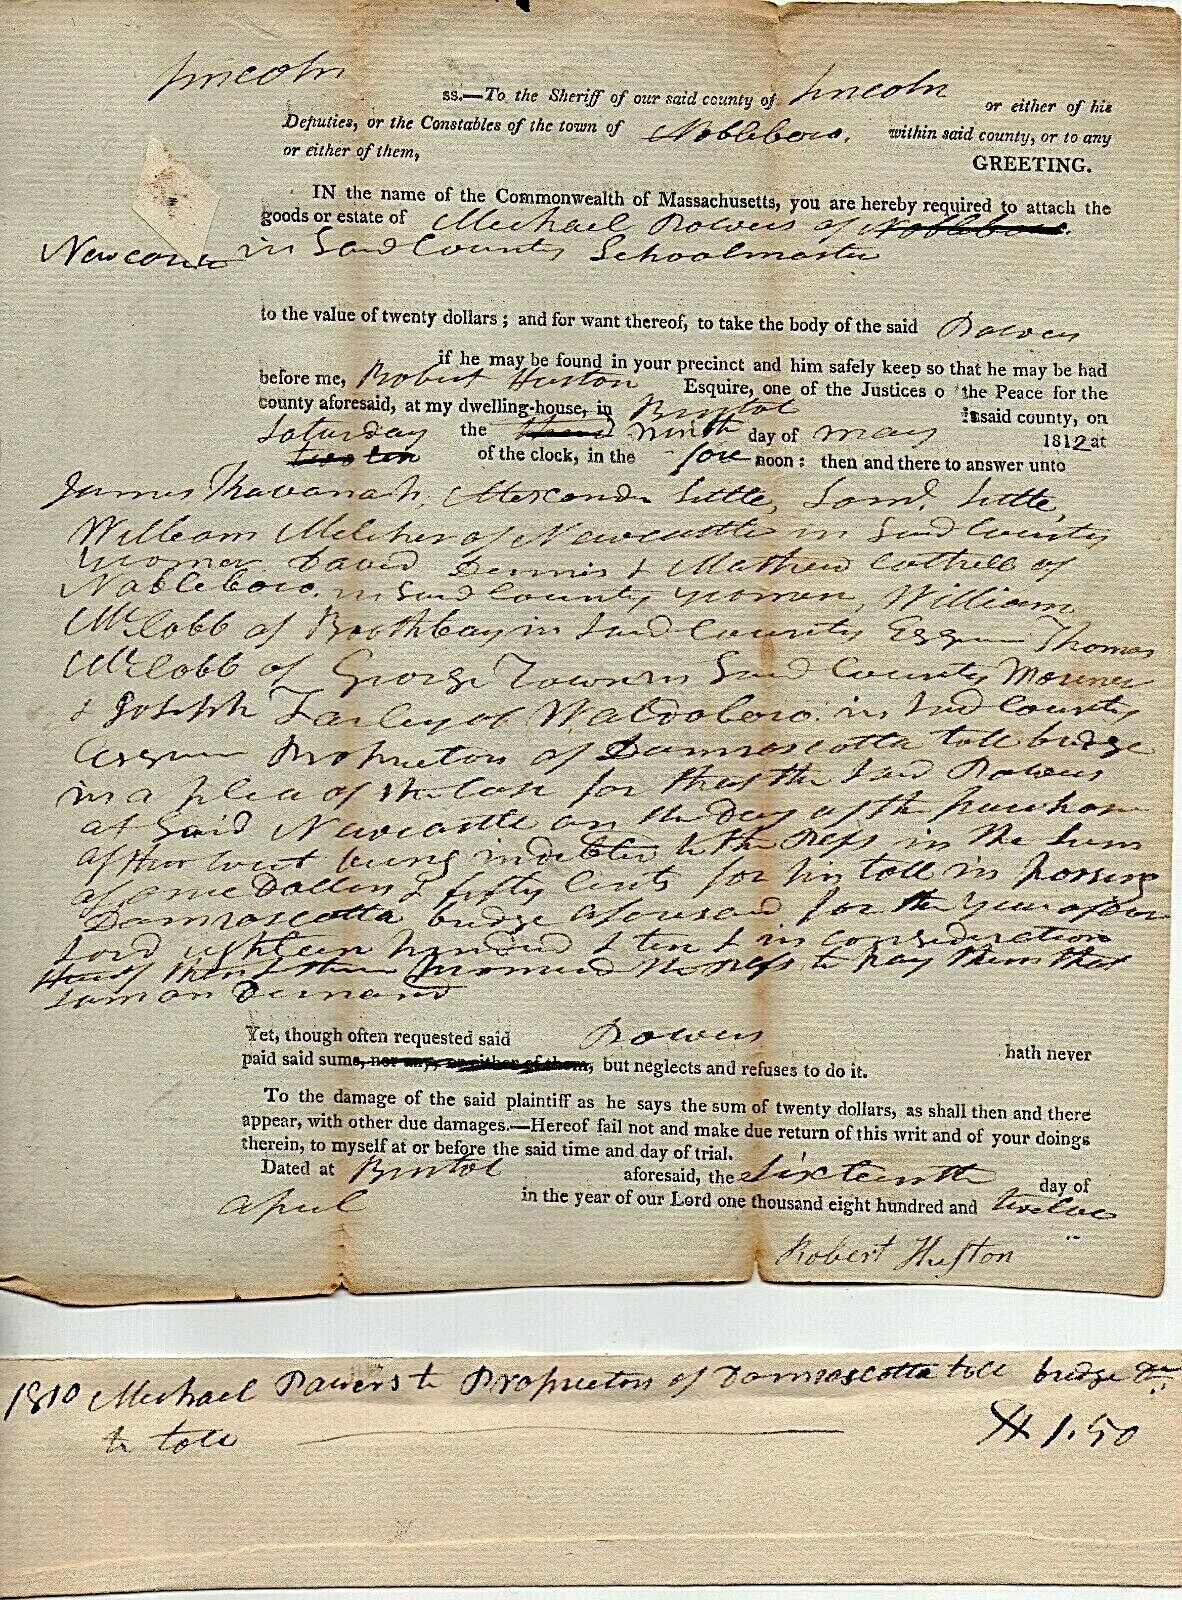 Lincoln
ss.—To the Sheriff of our said county of Lincoln or either of his
Deputies, or the Constables of the town of Nobleboro. within said county, or to any
or either of them, GREETING.
IN the name of the Commonwealth of Massachusetts, you are hereby required to attach the
goods or estate of Michael Powers of Nobleboro.
Newcastle in Said County Schoolmaster
to the value of twenty dollars; and for want thereof, to take the body of the said Powers
if he may be found in your precinct and him safely keep so that he may be had
before me, Robert Huston Esquire, one of the Justices o the Peace for the
county aforesaid, at my dwelling-house, in Bristol in said county, on
Saturday the third ninth day of may 1812 at
two ten of the clock, in the fore noon: then and there to answer unto
James Kavanah, Alexander Little, Saml. Little,
William Melcher of Newcastle in Said County
yeomen David Dennis & Mathew Cothrell of
Nobleboro. in Said County yeomen, William
McCobb of Boothbay in Said County Esquire Thomas
McCobb of George Town in Said County Mariner
& Joseph Farley of Waldoboro. in Said County
Esquire Proprietors of Damascotta toll bridge
in a plea of the Case for that the Said Powers
at Said Newcastle on the day of the purchase
of this writ being indebted to the Plffs in the Sum
of one Dollar & fifty Cents for his toll in passing
Damascotta bridge aforesaid for the year of our
Lord eighteen hundred & ten & in consideration
thereof then & there promised the Plffs to pay them that
Sum on Demand
Yet, though often requested said Powers hath never
paid said sums, nor any, or either of them, but neglects and refuses to do it.
To the damage of the said plaintiff as he says the sum of twenty dollars, as shall then and there
appear, with other due damages.—Hereof fail not and make due return of this writ and of your doings
therein, to myself at or before the said time and day of trial.
Dated at Bristol aforesaid, the Sixteenth day of
April in the year of our Lord one thousand eight hundred and twelve
Robert Huston
1810 Michael Powers to Proprietors of Damascotta toll bridge Dr
to toll $ 1.50